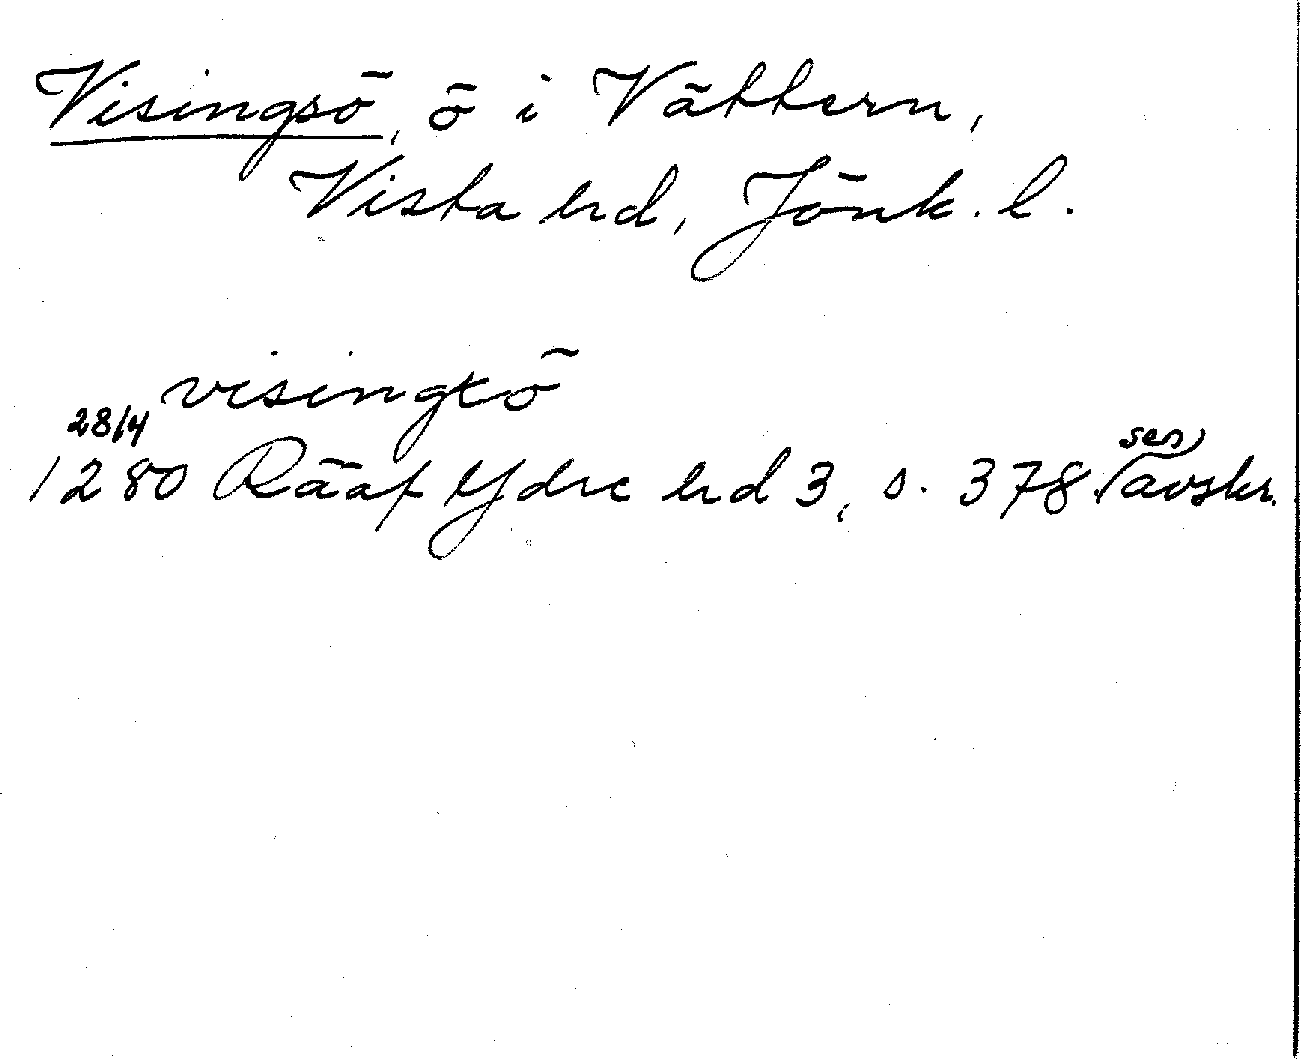 Visingsö, ö i Vättern,
Vista hd, Jönk. l.
visingxö
28/4
1280 Rääf Ydre hd 3, s. 378. sen avskr.